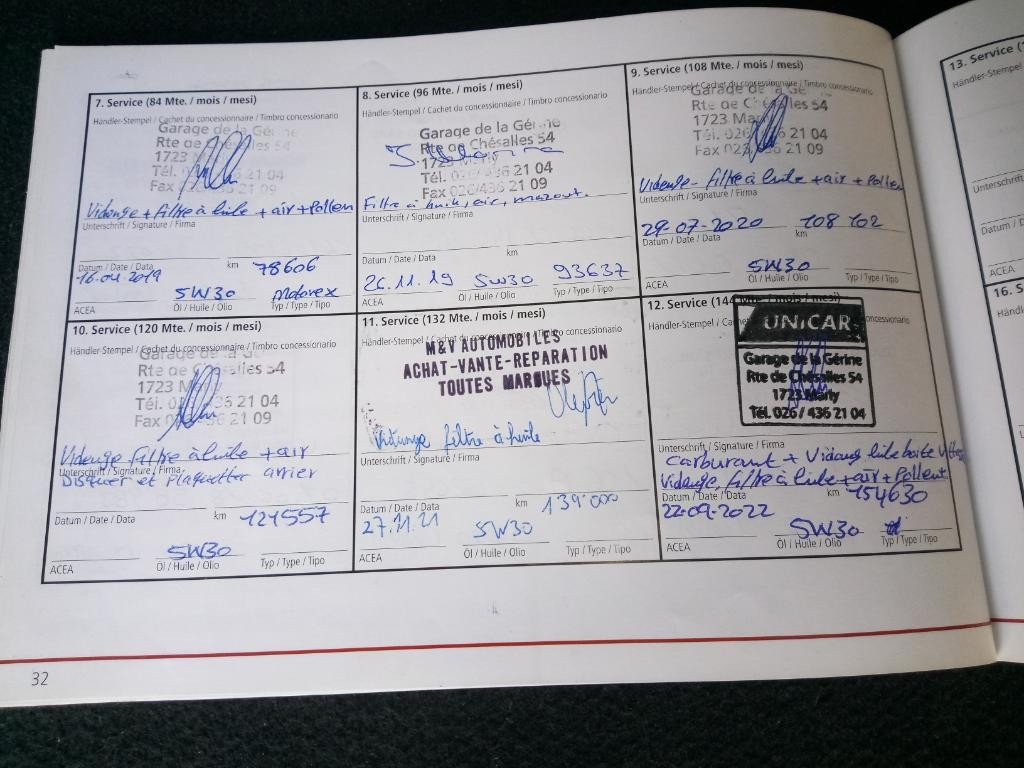 7. Service (84 Mte. / mois / mesi)
Händler-Stempel / Cachet du concessionnaire / Timbro concessionario
Garage de la Gérine
Rte de Chésalles 54
1723 Marly
Tél. 026/436 21 04
Fax 026/436 21 09
Vidange + filtre à huile + air + Pollen
Unterschrift / Signature / Firma
Datum / Date / Data
km 78606
16.04.2019
5W30
Motorex
ACEA
Öl / Huile / Olio
Typ / Type / Tipo
8. Service (96 Mte. / mois / mesi)
Händler-Stempel / Cachet du concessionnaire / Timbro concessionario
Garage de la Gérine
Rte de Chésalles 54
1723 Marly
Tél. 026/436 21 04
Fax 026/436 21 09
Filtre à huile, air, mazout.
Unterschrift / Signature / Firma
Datum / Date / Data
km
26.11.19 5W30 93637
ACEA
Öl / Huile / Olio
Typ / Type / Tipo
9. Service (108 Mte. / mois / mesi)
Händler-Stempel / Cachet du concessionnaire / Timbro concessionario
Garage de la Gé
Rte de Chésalles 54
1723 Marly
Tél. 026/436 21 04
Fax 026/436 21 09
Vidange - filtre à huile + air + Pollen
Unterschrift / Signature / Firma
29-07-2020 108 102
Datum / Date / Data
km
5W30
ACEA
Öl / Huile / Olio
Typ / Type / Tipo
10. Service (120 Mte. / mois / mesi)
Händler-Stempel / Cachet du concessionnaire / Timbro concessionario
Garage de la Gé
Rte de Chésalles 54
1723 Marly
Tél. 026/436 21 04
Fax 026/436 21 09
Vidange filtre à huile + air
Unterschrift / Signature / Firma
Disques et plaquettes arrier
Datum / Date / Data
km 121557
5W30
ACEA
Öl / Huile / Olio
Typ / Type / Tipo
11. Service (132 Mte. / mois / mesi)
Händler-Stempel / Cachet du concessionnaire / Timbro concessionario
M&Y AUTOMOBILES
ACHAT-VANTE-REPARATION
TOUTES MARQUES
Vidange filtre à huile
Unterschrift / Signature / Firma
Datum / Date / Data
km 139'000
27.11.21 5W30
ACEA
Öl / Huile / Olio
Typ / Type / Tipo
12. Service (144 Mte. / mois / mesi)
Händler-Stempel / Cachet du concessionnaire / Timbro concessionario
UNICAR
Garage de la Gérine
Rte de Chésalles 54
1723 Marly
Tél. 026 / 436 21 04
Unterschrift / Signature / Firma
Carburant + Vidang huile boite
Vidange, filtre à huile + air + Pollent
Datum / Date / Data
km 154630
22-09-2022
5W30
ACEA
Öl / Huile / Olio
Typ / Type / Tipo
32
13. Service
Händler-Stempel
Unterschrift
Datum
ACEA
16. S
Händl